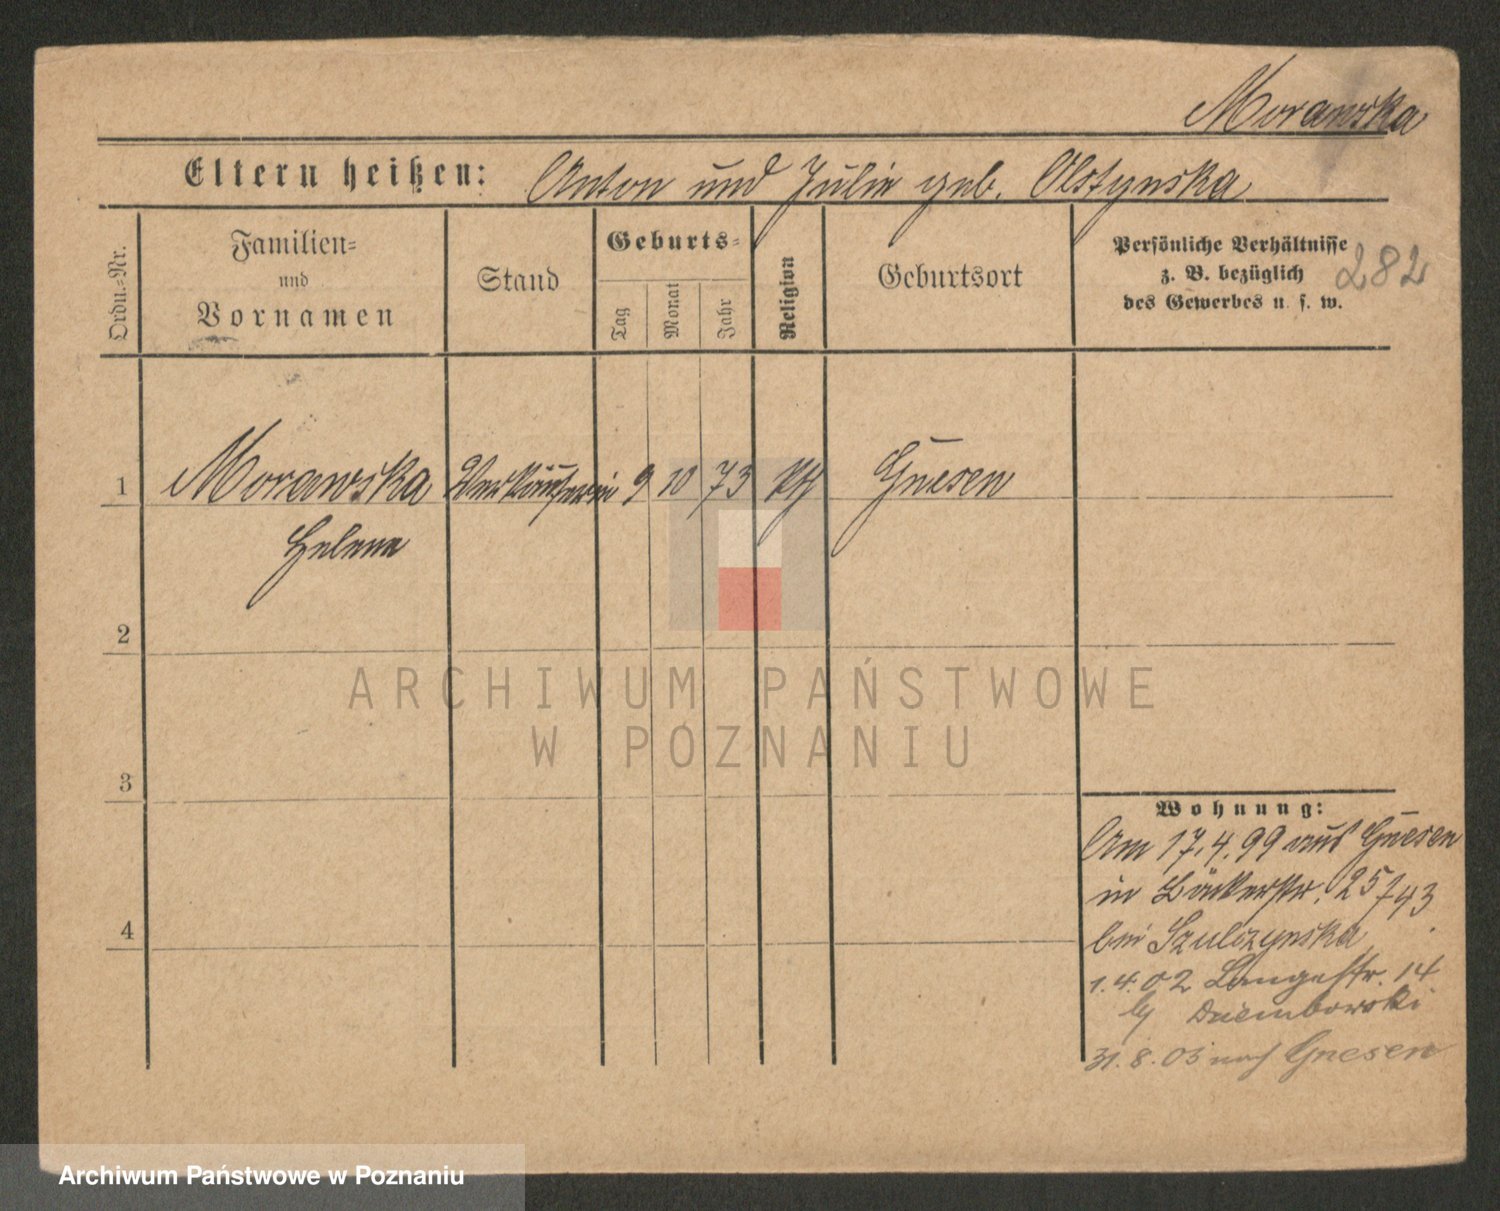 Morawska
Eltern heißen: Anton und Julie geb. Olstynska
Ordn.-Nr.
Familien-
und
Vornamen
Stand
Geburts-
Tag
Monat
Jahr
Religion
Geburtsort
Persönliche Verhältnisse
z. B. bezüglich
des Gewerbes u. s. w.
282
1 Morawska Verkäuferin 9 10 73 kth Gnesen
Helene
2
3
4
Wohnung:
Am 17.4.99 aus Gnesen
in Bäckerstr. 25/43
bei Szulczynska
1.4.02 Langestr. 14
by Dziembowski
31.8.03 nach Gnesen
ARCHIWUM PAŃSTWOWE
W POZNANIU
Archiwum Państwowe w Poznaniu